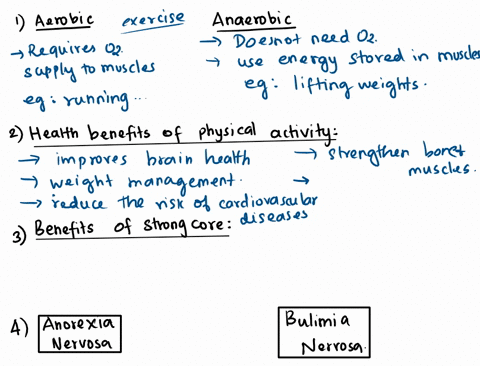 1) Aerobic exercise Anaerobic
→ Requires O2 supply to muscles
eg: running...
→ Doesnot need O2.
→ use energy stored in muscles
eg: lifting weights.
2) Health benefits of physical activity:
→ improves brain health
→ weight management.
→ reduce the risk of cardiovascular diseases
→ strengthen bone & muscles.
→
3) Benefits of strong core:
4) Anorexia Nervosa
Bulimia Nervosa.